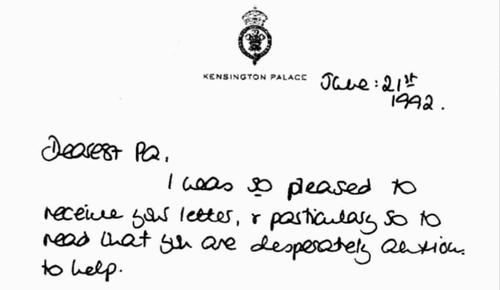 KENSINGTON PALACE
June: 21st
1992.
Dearest Pa,
I was so pleased to
receive your letter, & particularly so to
read that you are desperately anxious
to help.